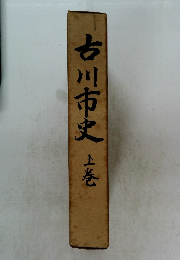 古川市史
上巻